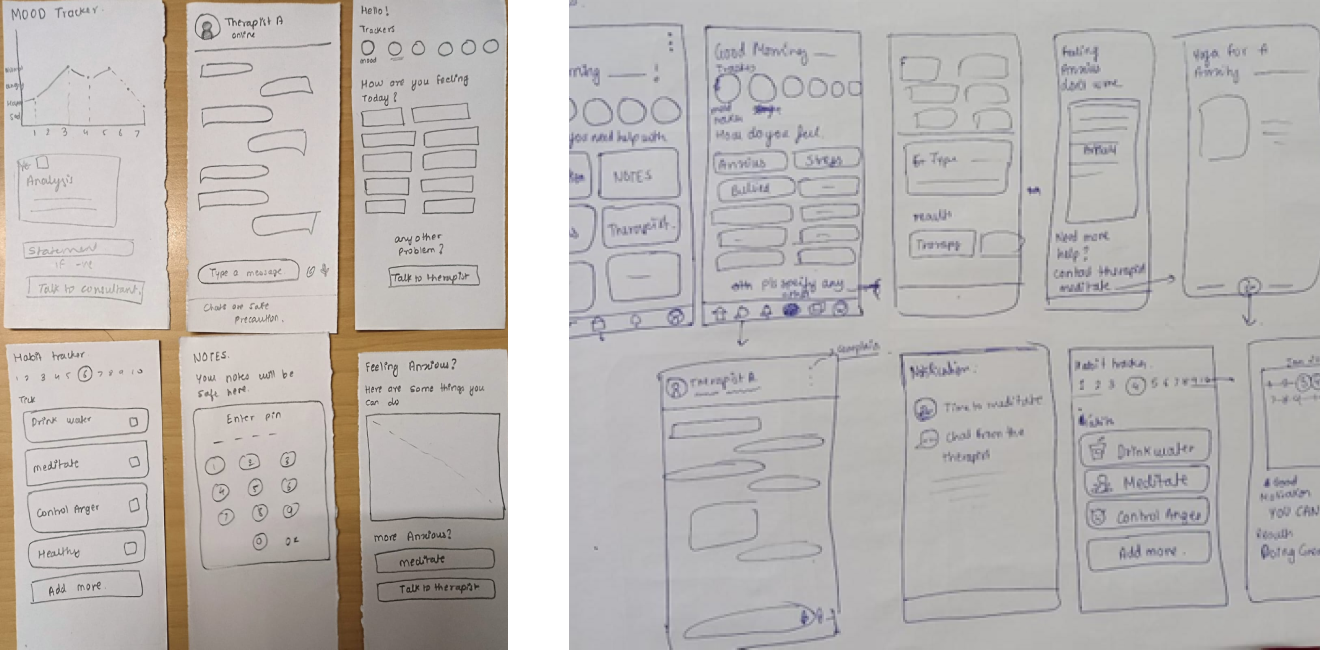 MOOD Tracker.
Angry
Sad
1 2 3 4 5 6 7
Analysis
Statement
if -ve
Talk to consultant
Therapist A
online
Type a message
Chats are safe
Precaution.
Hello!
Trackers
mood
How are you feeling
Today?
any other
Problem?
Talk to therapist
Habit tracker
1 2 3 4 5 6 7 8 9 10
Drink water
meditate
Control Anger
Healthy
Add more.
NOTES.
Your notes will be
safe here.
Enter pin
1 2 3
4 5 6
7 8 9
0 OK
Feeling Anxious?
Here are some things you
can do
more Anxious?
meditate
Talk to therapist
you need help with
NOTES
Therapist.
Good Morning
Tracker
mood
How do you feel.
Anxious
Stress
Bullied
any
Type
result
Therapy
Feeling
Anxious
Need more
help?
Contact therapist
meditate
Yoga for A
Anxiety
Therapist A.
complain
Notification.
Time to meditate
Chat from the
therapist
Habit tracker.
1 2 3 4 5 6 7 8 9 10
Habits
Drink water
Meditate
Control Anger
Add more.
Jan
A Good
Motivation
YOU CAN
Result
Doing